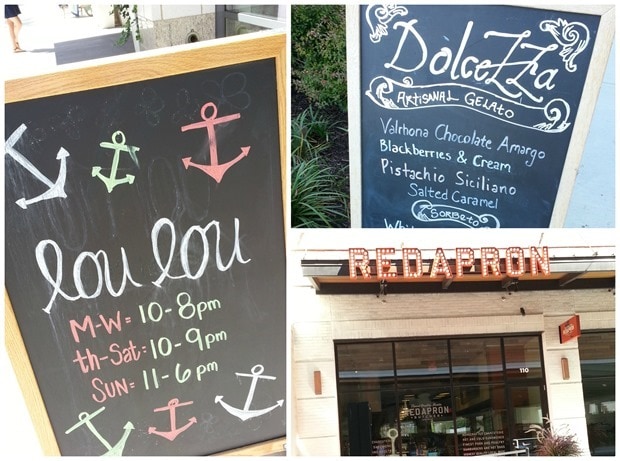 lou lou
M-W= 10-8pm
th-Sat: 10-9pm
Sun= 11-6pm
DolceZZa
Artisanal Gelato
Valrhona Chocolate Amargo
Blackberries & Cream
Pistachio Siciliano
Salted Caramel
Sorbeto
REDAPRON
110
REDAPRON